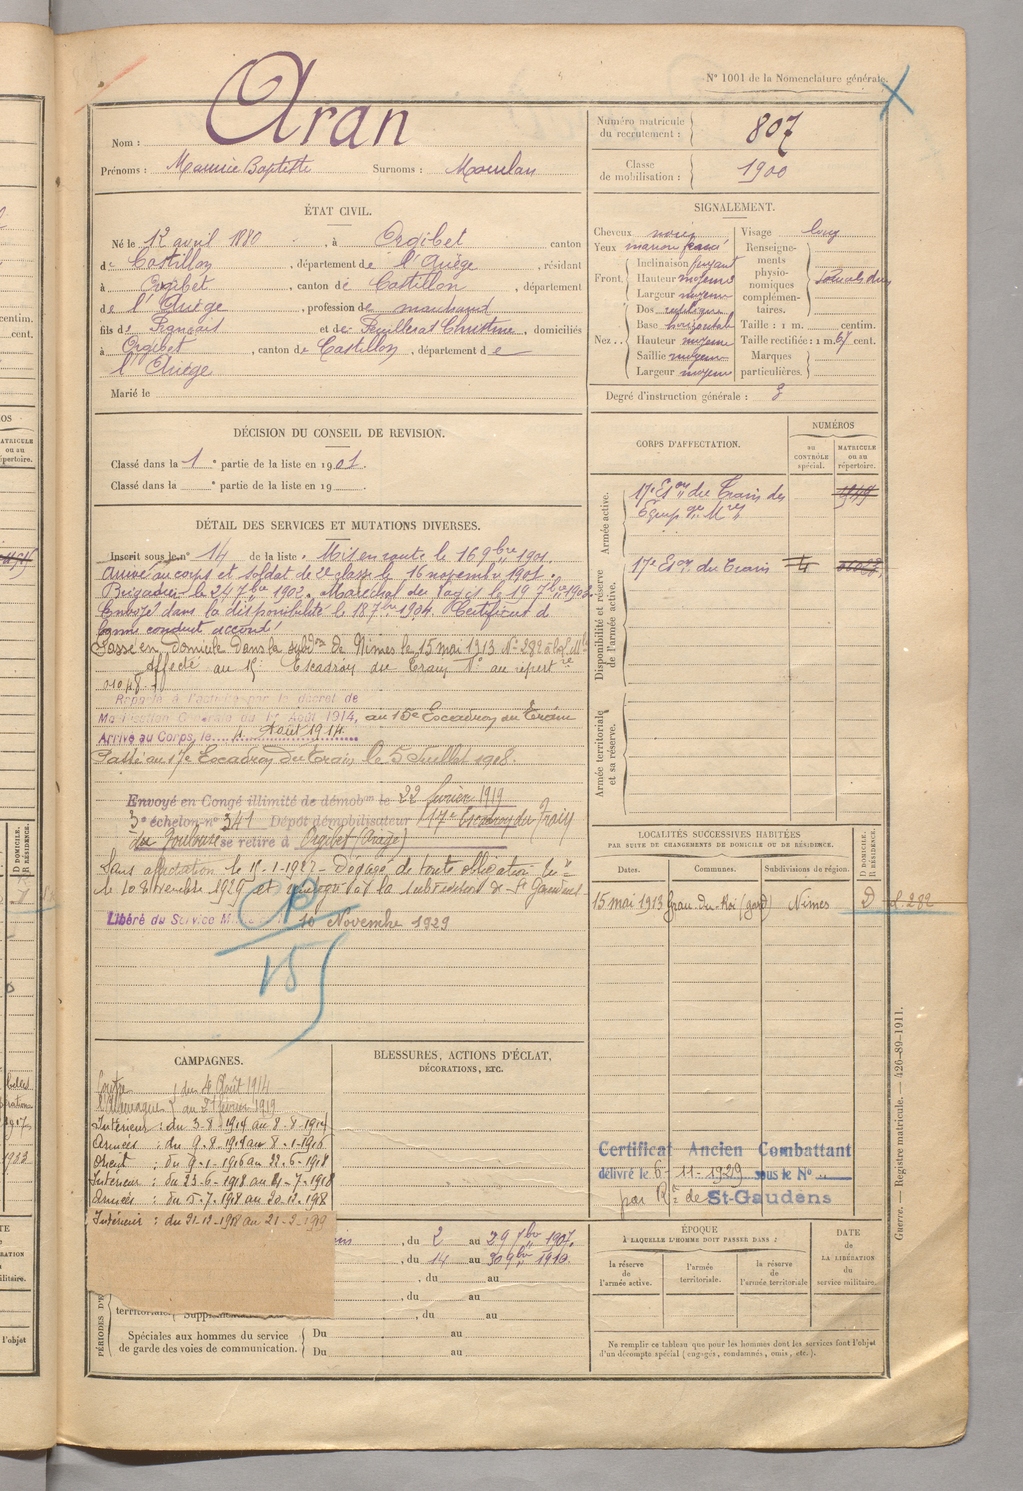 N° 1001 de la Nomenclature générale.
Nom : Aran
Prénoms : Maurice Baptiste Surnoms : Moulan
Numéro matricule du recrutement : 807
Classe de mobilisation : 1900
ÉTAT CIVIL.
Né le 12 avril 1880, à Orgibet canton
de Castillon, département de l'Ariège, résidant
à Orgibet, canton de Castillon, département
de l'Ariège, profession de marchand
fils de François et de Peuillerat Christine, domiciliés
à Orgibet, canton de Castillon, département de
l'Ariège
Marié le
SIGNALEMENT.
Cheveux noirs
Yeux marron foncé
Front. Inclinaison fuyant
Hauteur moyenne
Largeur moyenne
Nez.. Dos rectiligne
Base horizontale
Hauteur moyenne
Saillie moyenne
Largeur moyenne
Visage long
Renseignements physionomiques complémentaires.
Taille : 1 m. centim.
Taille rectifiée : 1 m. 67 cent.
Marques particulières.
Degré d'instruction générale : 3
DÉCISION DU CONSEIL DE REVISION.
Classé dans la 1e partie de la liste en 1901.
Classé dans la e partie de la liste en 19
DÉTAIL DES SERVICES ET MUTATIONS DIVERSES.
Inscrit sous le n° 14 de la liste. Mis en route le 16 9bre 1901.
Arrivé au corps et soldat de 2e classe le 16 novembre 1901.
Brigadier le 24 7bre 1902. Maréchal des logis le 19 7bre 1903
Envoyé dans la disponibilité le 18 7bre 1904. Certificat de
bonne conduite accordé
Passé en domicile dans la subdon de Nîmes le 15 mai 1913 N° 282
Affecté au 15 Escadron du Train N° au répertre
01048
Rappelé à l'activité par le décret de
Mobilisation Générale du 1er Août 1914, au 15e Escadron du Train
Arrivé au Corps, le 4 Août 1914
Passé au 17e Escadron du Train le 5 Juillet 1918.
Envoyé en Congé illimité de démobon le 22 février 1919
3e échelon n° 341 Dépôt démobilisateur 17e Escadron du Train
de Toulouse se retire à Orgibet (Ariège)
Sans affectation le 15-1-1927 - Dégagé de toute obligation
le 10 Novembre 1929 la subdivision de St Gaudens
Libéré du Service M 10 Novembre 1929
15
CORPS D'AFFECTATION.
NUMÉROS
au CONTRÔLE spécial.
MATRICULE ou au répertoire.
Armée active.
17e Eson du Train des
Equipges Mres
1949
Disponibilité et réserve de l'armée active.
17e Eson du Train
Armée territoriale et sa réserve.
LOCALITÉS SUCCESSIVES HABITÉES
PAR SUITE DE CHANGEMENTS DE DOMICILE OU DE RÉSIDENCE.
Dates. Communes. Subdivisions de région. D DOMICILE. R RÉSIDENCE.
15 mai 1913 Grau-du-Roi (Gard) Nîmes D d. 282
CAMPAGNES.
Contre l'Allemagne du 4 Août 1914
au 21 février 1919
Intérieur : du 3-8-1914 au 8-8-1914
Armées : du 9-8-1914 au 8-1-1916
Orient : du 9-1-1916 au 22-6-1918
Intérieur : du 23-6-1918 au 4-7-1918
Armées : du 5-7-1918 au 20-12-1918
Intérieur : du 21-12-1918 au 21-2-1919
BLESSURES, ACTIONS D'ÉCLAT,
DÉCORATIONS, ETC.
Certificat Ancien Combattant
délivré le 6-11-1929 sous le N°
par Rt de St-Gaudens
, du 2 au 29 7bre 1907.
, du 14 au 30 9bre 1910.
, du au
, du au
territoriale. , du au
Spéciales aux hommes du service de garde des voies de communication.
Du au
Du au
ÉPOQUE
À LAQUELLE L'HOMME DOIT PASSER DANS :
la réserve de l'armée active.
l'armée territoriale.
la réserve de l'armée territoriale
DATE de LA LIBÉRATION du service militaire.
Ne remplir ce tableau que pour les hommes dont les services font l'objet
d'un décompte spécial (engagés, condamnés, omis, etc.).
Guerre. — Registre matricule. — 426-89-1911.